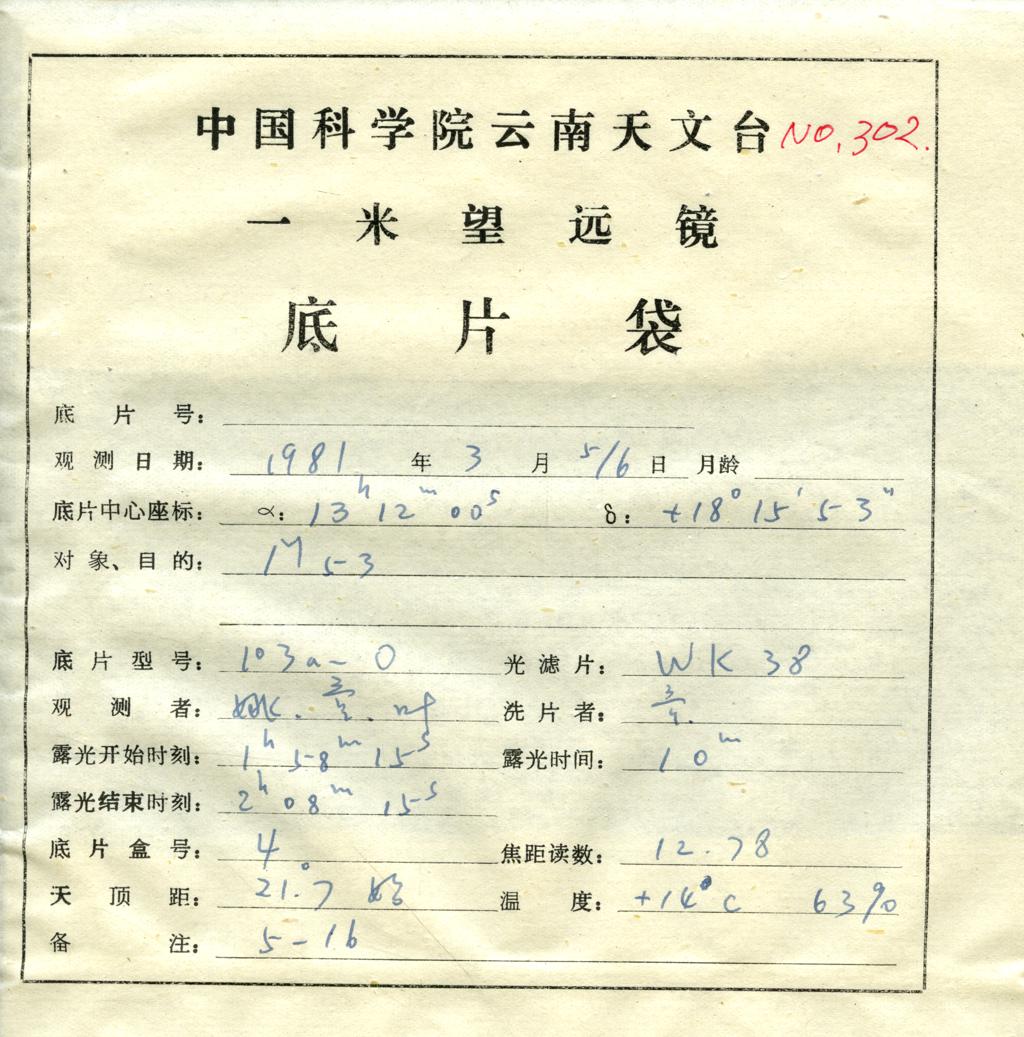 中国科学院云南天文台 NO.302.
一米望远镜
底片袋
底片号:
观测日期: 1981 年 3 月 5/6 日 月龄
底片中心座标: α: 13h 12m 00s δ: +18° 15′ 53″
对象、目的: M 53
底片型号: 103a-O 光滤片: WK 38
观测者: 姚. . 叶 洗片者:
露光开始时刻: 1h 58m 15s 露光时间: 10m
露光结束时刻: 2h 08m 15s
底片盒号: 4 焦距读数: 12.78
天顶距: 21°.7 始 温度: +14°C 63%
备注: 5-16